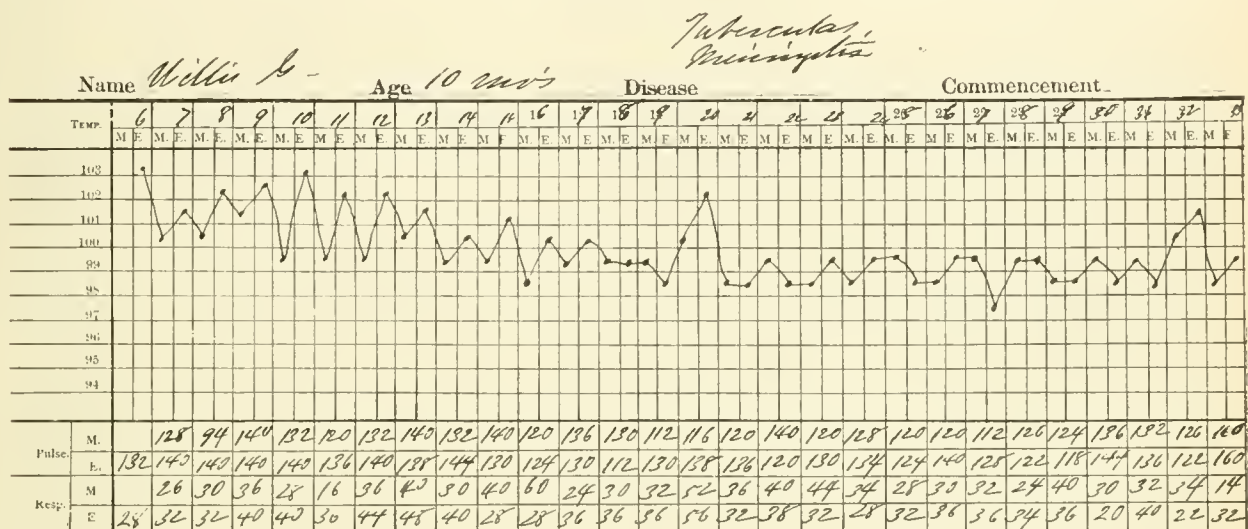 Tubercular
Meningitis
Name Willie G- Age 10 mos Disease Commencement
TEMP. 6 7 8 9 10 11 12 13 14 16 17 18 19 20 21 22 25 26 27 28 29 30 31 32
M E. M. E. M. E. M. E. M. E. M E M E M E M E M E M E M E M E M. E M E M E M E M E M E. M E M E M E M. E M E M E M E M E. M E
103
102
101
100
99
98
97
96
95
94
Pulse. M. 128 94 140 132 120 132 140 132 140 120 136 130 112 116 120 140 120 128 120 120 112 126 124 136 132 126 160
E. 132 140 140 140 140 136 140 138 144 130 124 130 112 130 138 136 120 130 134 124 140 128 122 118 144 136 122 160
Resp. M 26 30 36 28 16 36 40 30 40 60 24 30 32 52 36 40 44 34 28 30 32 24 40 30 32 34 14
E 28 32 32 40 40 30 44 48 40 28 28 36 36 36 56 32 38 32 28 32 36 36 34 36 20 40 22 32